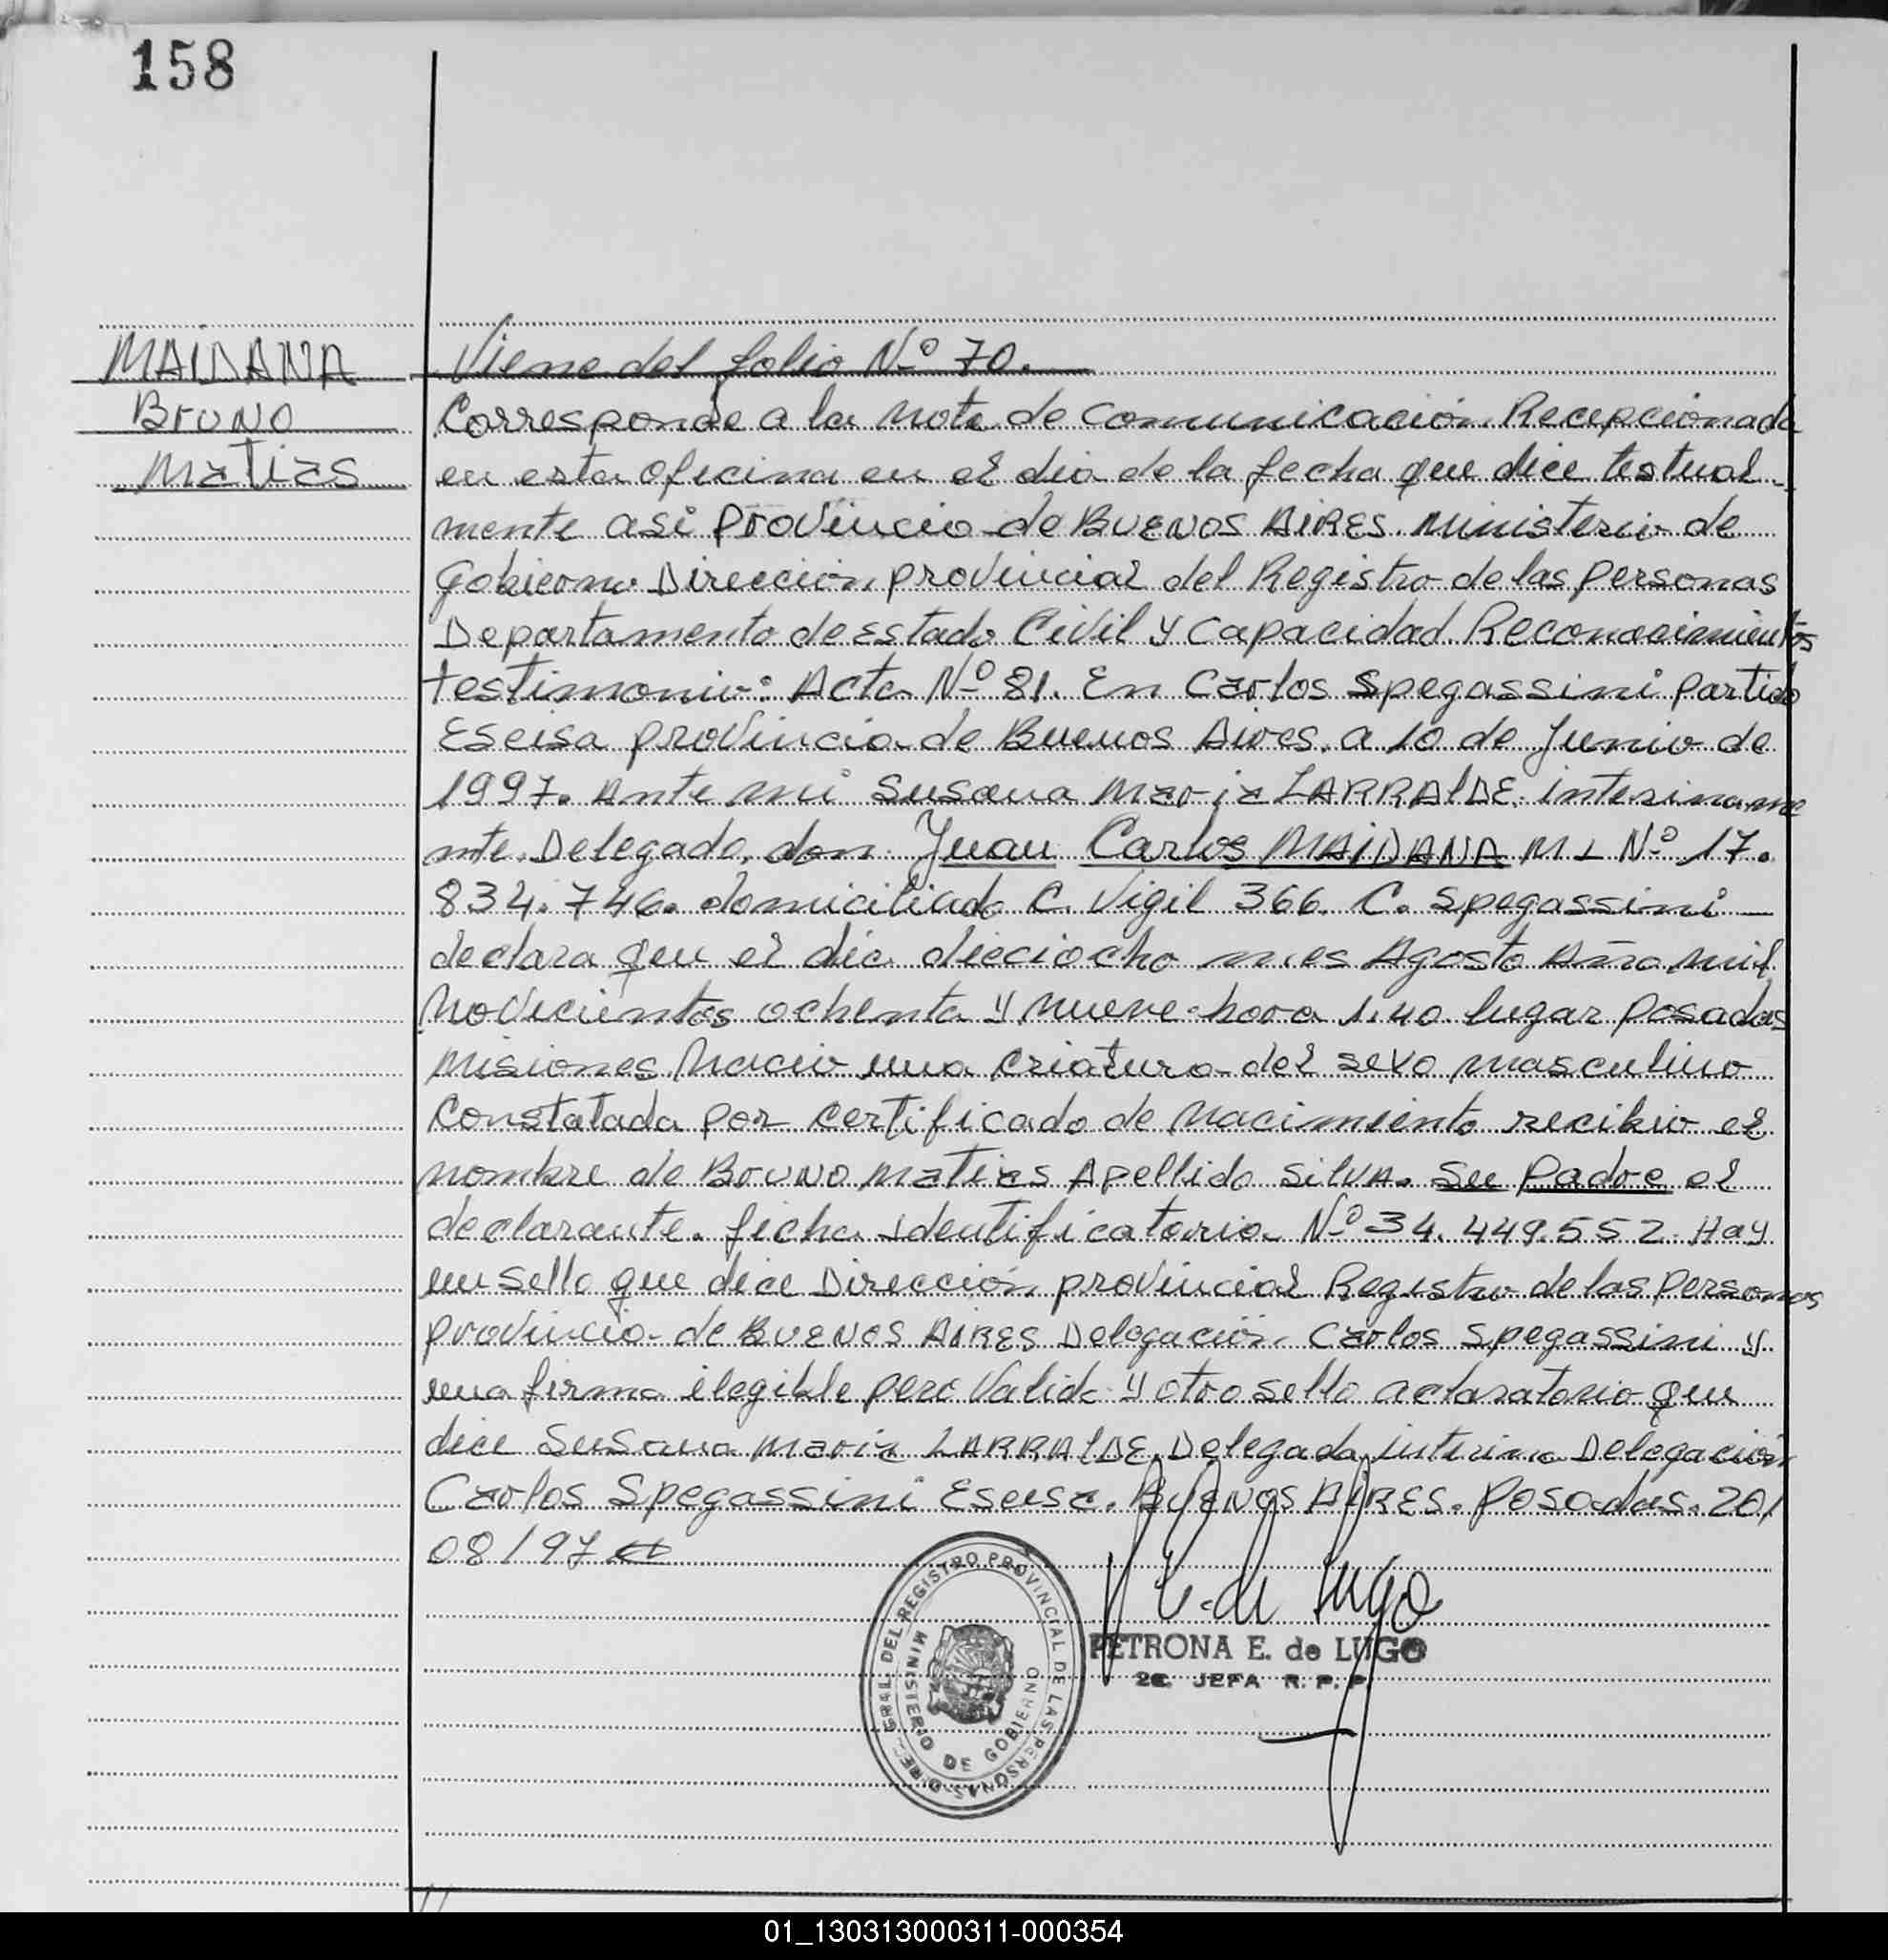 158
MAIDANA
Bruno
Matias
Viene del folio Nº 70.
Corresponde a la Nota de comunicación Recepcionada
en esta oficina en el dia de la fecha que dice testual-
mente asi provincia de BUENOS AIRES. Ministerio de
Gobierno Dirección provincial del Registro de las personas
Departamento de Estado Civil y Capacidad Reconocimientos
testimonio: Acta Nº 81. En Carlos Spegassini partido
Eseisa provincia de Buenos Aires, a 10 de Junio de
1997. Ante mi Susana Maria LARRAlDE. interiname
nte. Delegado, don Juan Carlos MAIDANA M I Nº 17.
834.746. domiciliado C. Vigil 366. C. Spegassini —
declara que el dia dieciocho mes Agosto Año mil
Novecientos ochenta y nueve hora 1.40 lugar posadas
Misiones Nacio una criatura del sexo masculino
Constatada por certificado de Nacimiento recibio el
nombre de Bruno Matias Apellido SilVA. su Padre el
declarante. ficha identificatoria Nº 34.449.552. Hay
un sello que dice Dirección provincial Registro de las personas
provincia de BUENOS AIRES Delegación Carlos Spegassini y
una firma ilegible pero Valida y otro sello aclaratorio que
dice Susana Maria LARRAlDE, Delegada interina Delegación
Carlos Spegassini Eseisa. BUENOS AIRES. Posadas. 20/
08/97
P E. de Lugo
PETRONA E. de LUGO
2E. JEFA R. P. P.
DIREC. GRAL. DEL REGISTRO PROVINCIAL DE LAS PERSONAS
MINISTERIO DE GOBIERNO
01_130313000311-000354